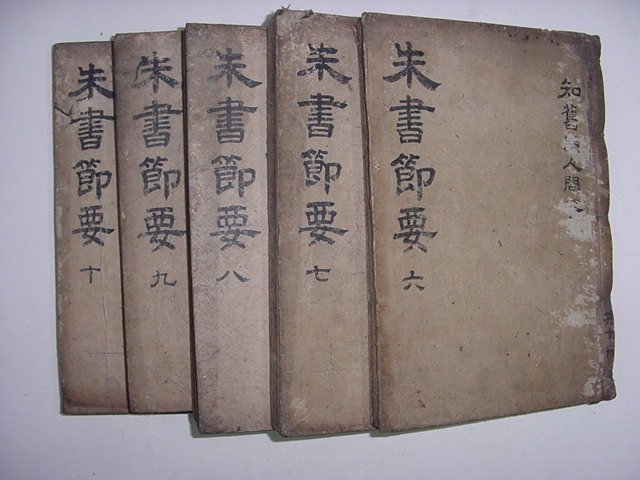 朱書節要 六
知舊 人 問
朱書節要 七
朱書節要 八
朱書節要 九
朱書節要 十